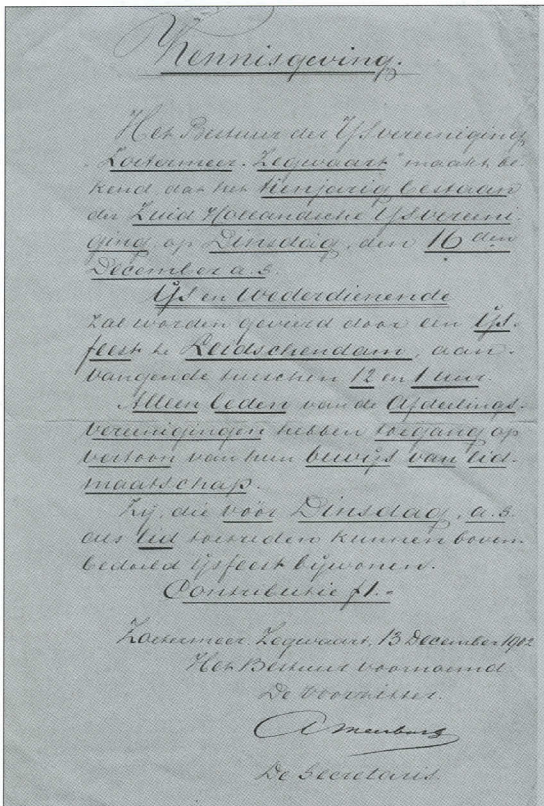 Kennisgeving.
Het Bestuur der IJsvereeniging
"Zoetermeer-Zegwaart" maakt be-
kend dat het tienjarig bestaan
der Zuid Hollandsche IJsvereeni-
ging, op Dinsdag, den 16 den
December a.s.
IJs en Wederdienende
zal worden gevierd door een IJs-
feest te Leidschendam, aan-
vangende tusschen 12 en 1 uur.
Alleen leden van de Afdeelings-
vereenigingen hebben toegang op
vertoon van hun bewijs van lid-
maatschap.
Zij, die vóór Dinsdag, a.s.
als lid toetreden kunnen boven-
bedoeld IJsfeest bijwonen.
Contributie f1.-
Zoetermeer-Zegwaart, 13 December 1902
Het Bestuur voornoemd
De Voorzitter.
De Secretaris.